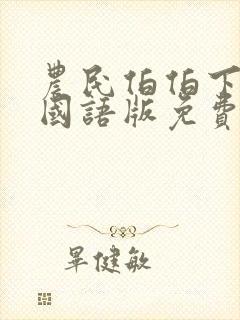 農民伯伯下
國語版免費
畢健敏